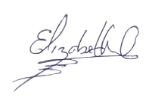 Elizabeth O